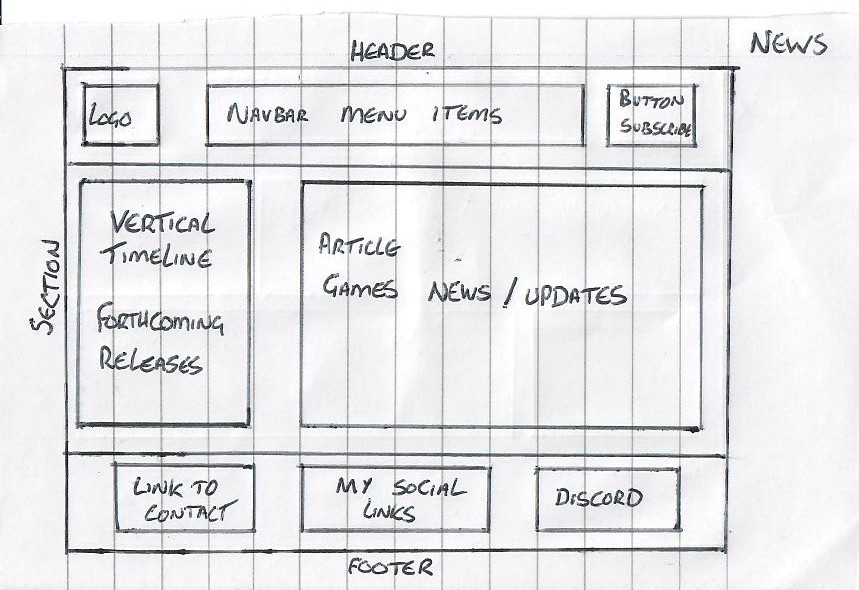 HEADER
NEWS
LOGO
NAVBAR MENU ITEMS
BUTTON
SUBSCRIBE
SECTION
VERTICAL
TIMELINE
FORTHCOMING
RELEASES
ARTICLE
GAMES NEWS / UPDATES
LINK TO
CONTACT
MY SOCIAL
LINKS
DISCORD
FOOTER